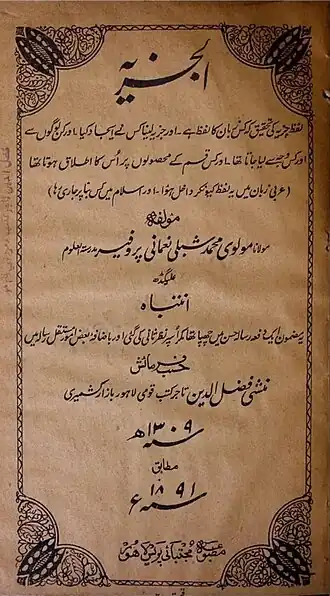 الجزیہ
لفظ جزیہ کی تحقیق کہ کس زبان کا لفظ ہے۔ اور جزیہ لینا کس نے ایجاد کیا۔ اور کن لوگوں سے
اور کس وجہ سے لیا جاتا تھا۔ اور کس قسم کے محصولوں پر اُس کا اطلاق ہوتا تھا
(عربی زبان میں یہ لفظ کیونکر داخل ہوا۔ اور اسلام میں کس بنا پر جاری رہا)
مؤلفۂ
مولانا مولوی محمد شبلی نعمانی پروفیسر مدرسۃ العلوم
علیگڈھ
انتباہ
یہ مضمون ایک دفعہ رسالہ حسن میں چھپا تھا مگر اُسپر نظر ثانی کی گئی اور باضافہ بعض امور مستقل رسالہ میں
حسب فرمائش
منشی فضل الدین تاجر کتب قومی لاہور بازار کشمیری
سنہ ۱۳۰۹ھ
مطابق
سنہ ۱۸۹۱ء
مطبوعہ مجتبائی پریس لاہور